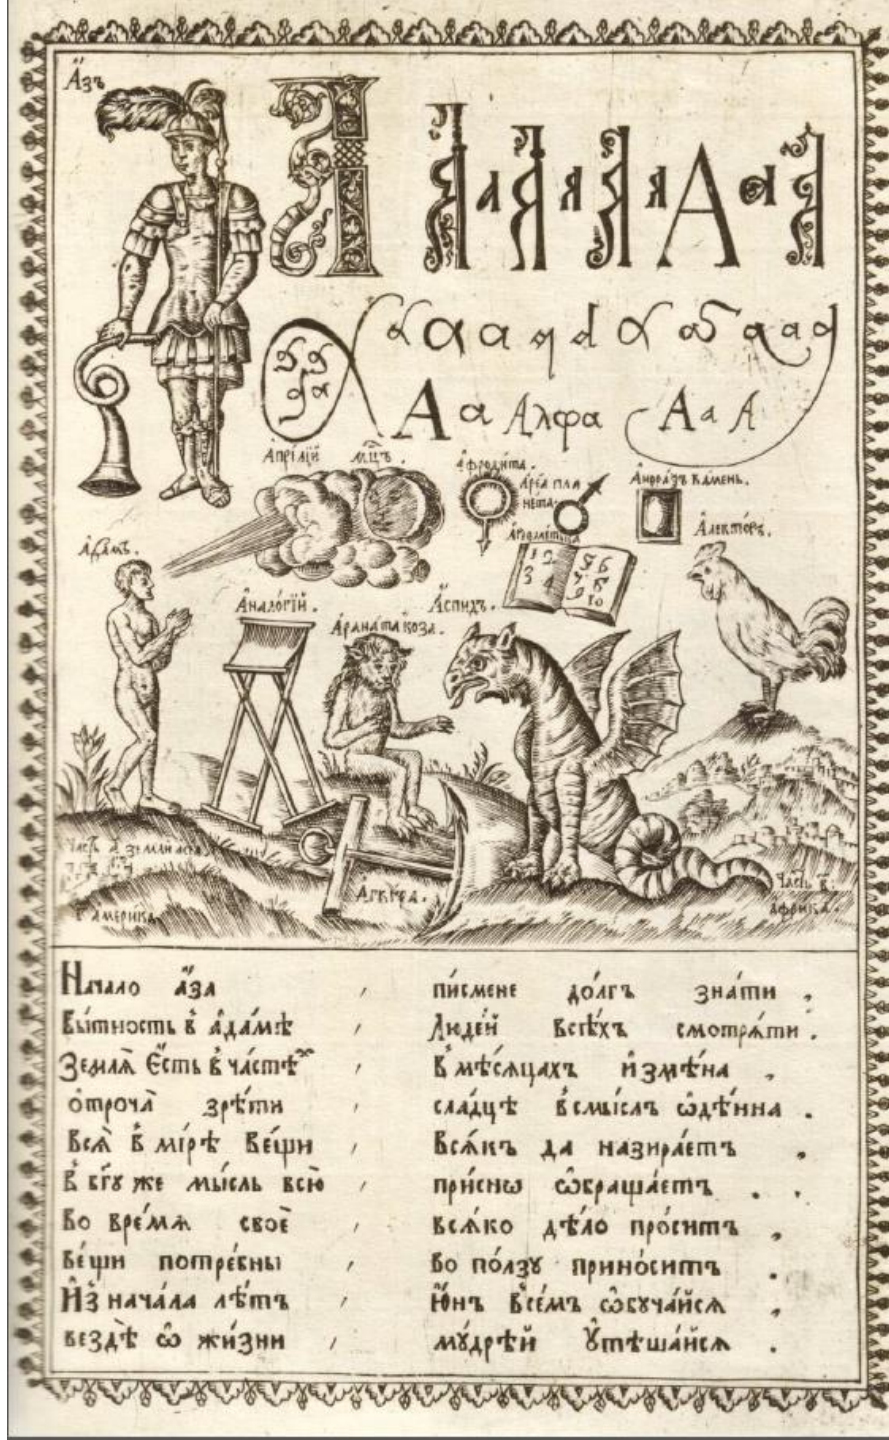 А҆́зъ
А а А а А а А а А
а а а а а а а а а а
А а Алфа А а А
А҆прі́лїй мц҃ъ.
А҆фроди́та.
А҆ре́а пла
нета.
А҆нѳра́ѯъ ка́мень.
А҆риѳме́тїка
1 2 3 4 5 6 7 8 9 10
А҆ле́кторъ.
А҆да́мъ.
А҆нало́гїй.
А҆́спидъ.
А҆
коза.
А҆́гкѵра.
ча́сть а҆ земли́
а҆мерика
Ча́сть в҃.
а҆фріка.
Нача́ло а҆́за , пи́смене до́лгъ зна́ти ,
Бы́тность в̾ а҆да́мѣ , Люде́й всѣ́хъ смотрѧ́ти .
Землѧ̀ Є҆́сть в̾ ча́стѣхъ , в̾ мѣ́сѧцахъ и҆змѣ́на ,
ѻ҆троча̀ зрѣ́ти , сла́дцѣ в̾смы́слъ ѡ҆дѣ́нна .
всѧ̀ в̾ мі́рѣ ве́щи , всѧ́къ да назира́етъ ,
в̾ бг҃у же мы́сль всю̀ , при́снѡ ѡ҆браща́етъ .
во вре́мѧ своѐ , всѧ́ко дѣ́ло про́ситъ ,
ве́щи потре́бны , во по́лзу прино́ситъ .
И҆з̾ нача́ла лѣ́тъ , ю҆́нъ все́мъ ѡ҆буча́йсѧ ,
вездѣ̀ ѡ҆ жи́зни , мꙋ́дрѣй ᲂу҆тѣша́йсѧ .